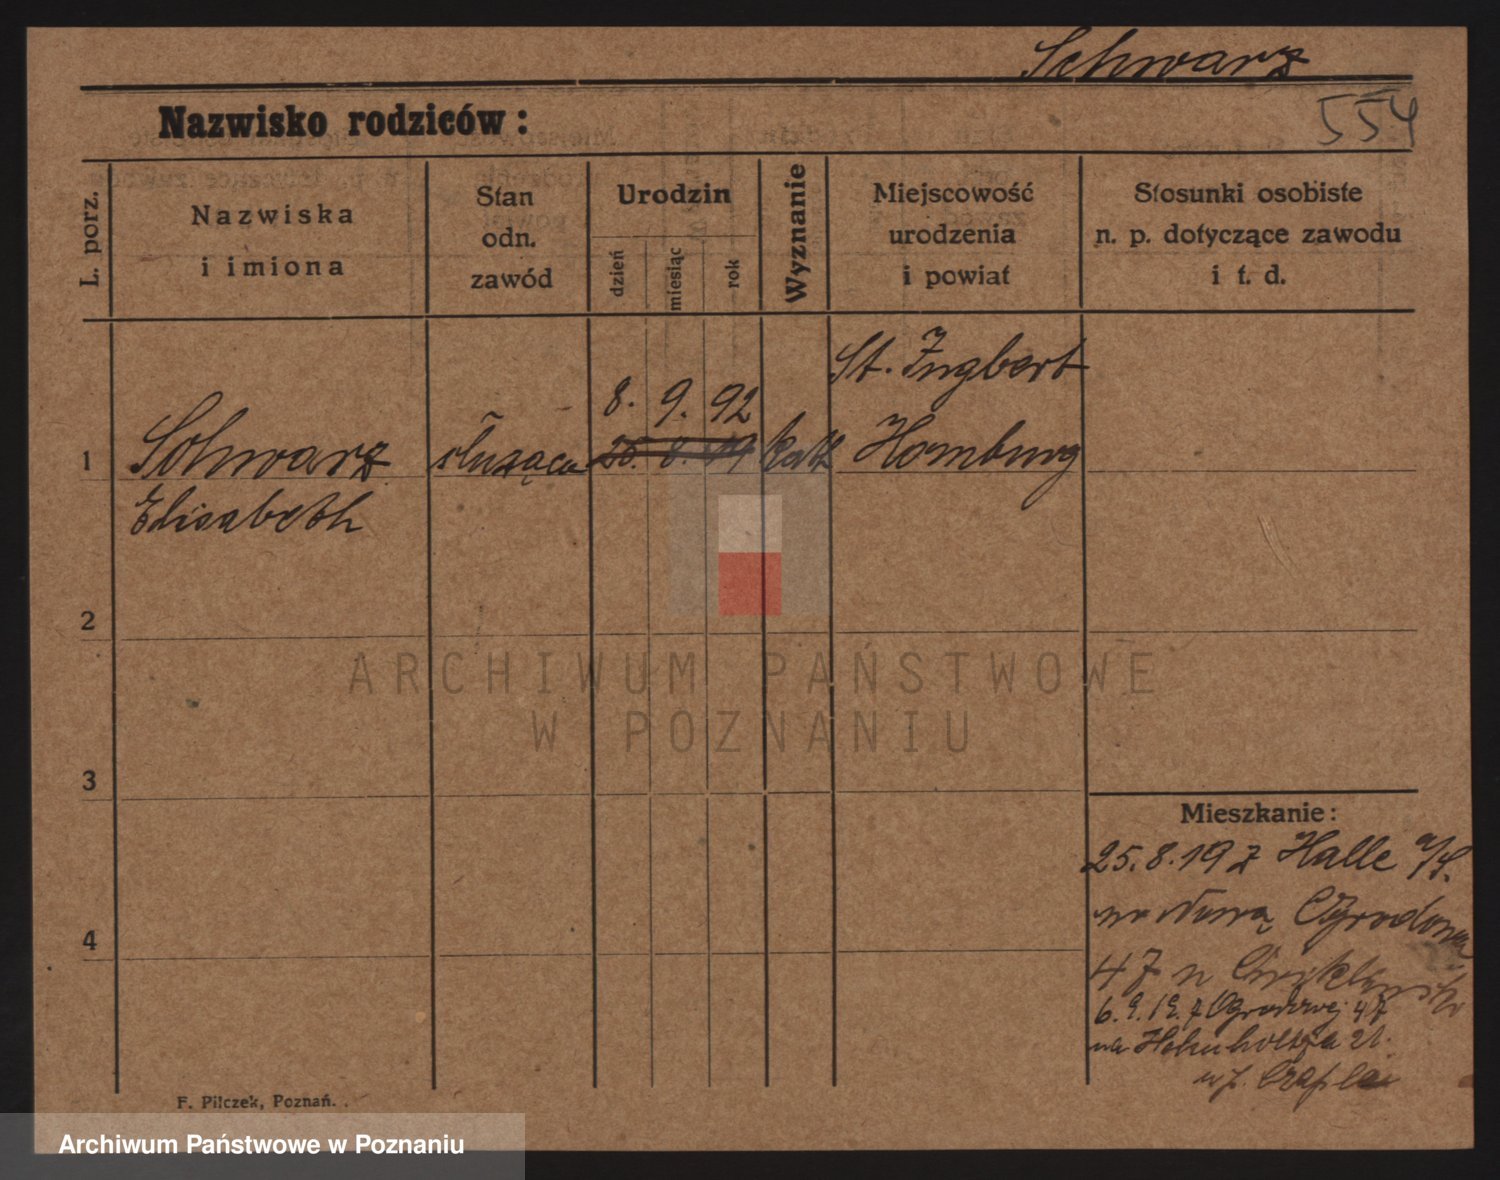 Schwarz
Nazwisko rodziców:
554
L. porz.
Nazwiska
i imiona
Stan
odn.
zawód
Urodzin
dzień
miesiąc
rok
Wyznanie
Miejscowość
urodzenia
i powiat
Stosunki osobiste
n. p. dotyczące zawodu
i t. d.
St. Ingbert
8. 9. 92
1
Schwarz
służąca
kath
Homburg
Elisabeth
2
ARCHIWUM PAŃSTWOWE
W POZNANIU
3
Mieszkanie:
25.8.19 z Halle a/S.
na Nową Ogrodową
4
47
6.9.19. z Ogrodowej 47
na 21.
Czapla
F. Pilczek, Poznań.
Archiwum Państwowe w Poznaniu